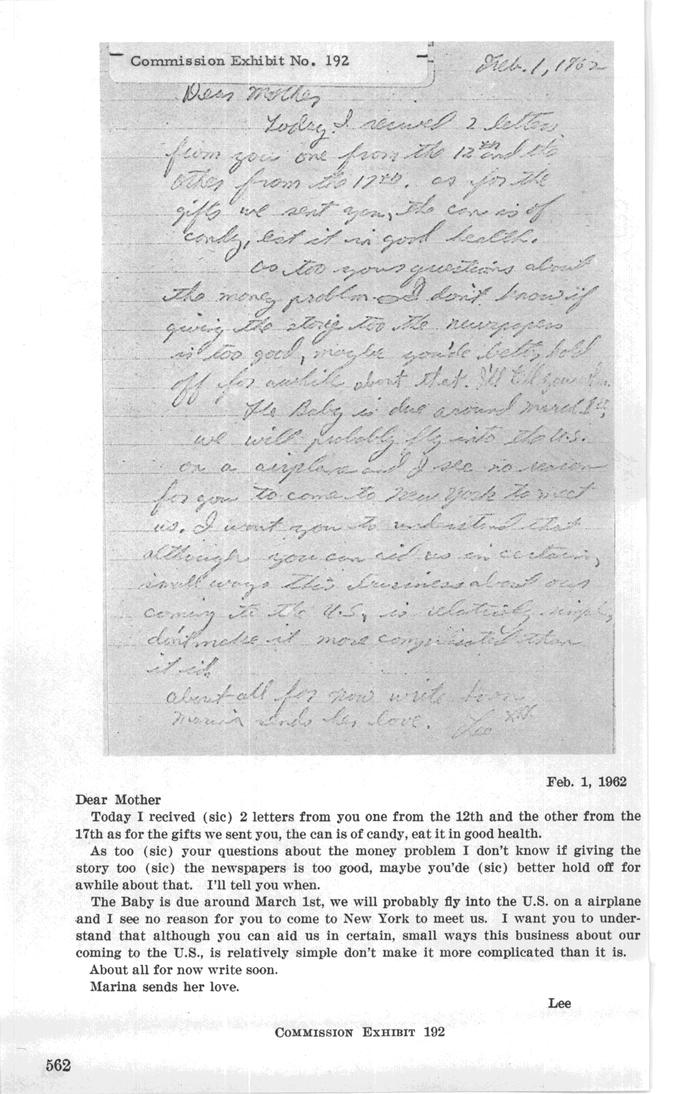 Commission Exhibit No. 192
Feb. 1, 1962
Dear Mother
Today I recived 2 letters
from you one from the 12th and the
other from the 17th. as for the
gifts we sent you, the can is of
candy, eat it in good health.
As too your questions about
the money problem I don't know if
giving the story too the newspapers
is too good, maybe you'de better hold
off for awhile about that. I'll tell you when.
The Baby is due around March 1st,
we will probably fly into the U.S.
on a airplane and I see no reason
for you to come to New York to meet
us. I want you to understand that
although you can aid us in certain,
small ways this business about our
coming to the U.S., is relatively simple
don't make it more complicated than
it is.
about all for now write soon
Marina sends her love. Lee
Feb. 1, 1962
Dear Mother
Today I recived (sic) 2 letters from you one from the 12th and the other from the
17th as for the gifts we sent you, the can is of candy, eat it in good health.
As too (sic) your questions about the money problem I don't know if giving the
story too (sic) the newspapers is too good, maybe you'de (sic) better hold off for
awhile about that. I'll tell you when.
The Baby is due around March 1st, we will probably fly into the U.S. on a airplane
and I see no reason for you to come to New York to meet us. I want you to under-
stand that although you can aid us in certain, small ways this business about our
coming to the U.S., is relatively simple don't make it more complicated than it is.
About all for now write soon.
Marina sends her love.
Lee
COMMISSION EXHIBIT 192
562